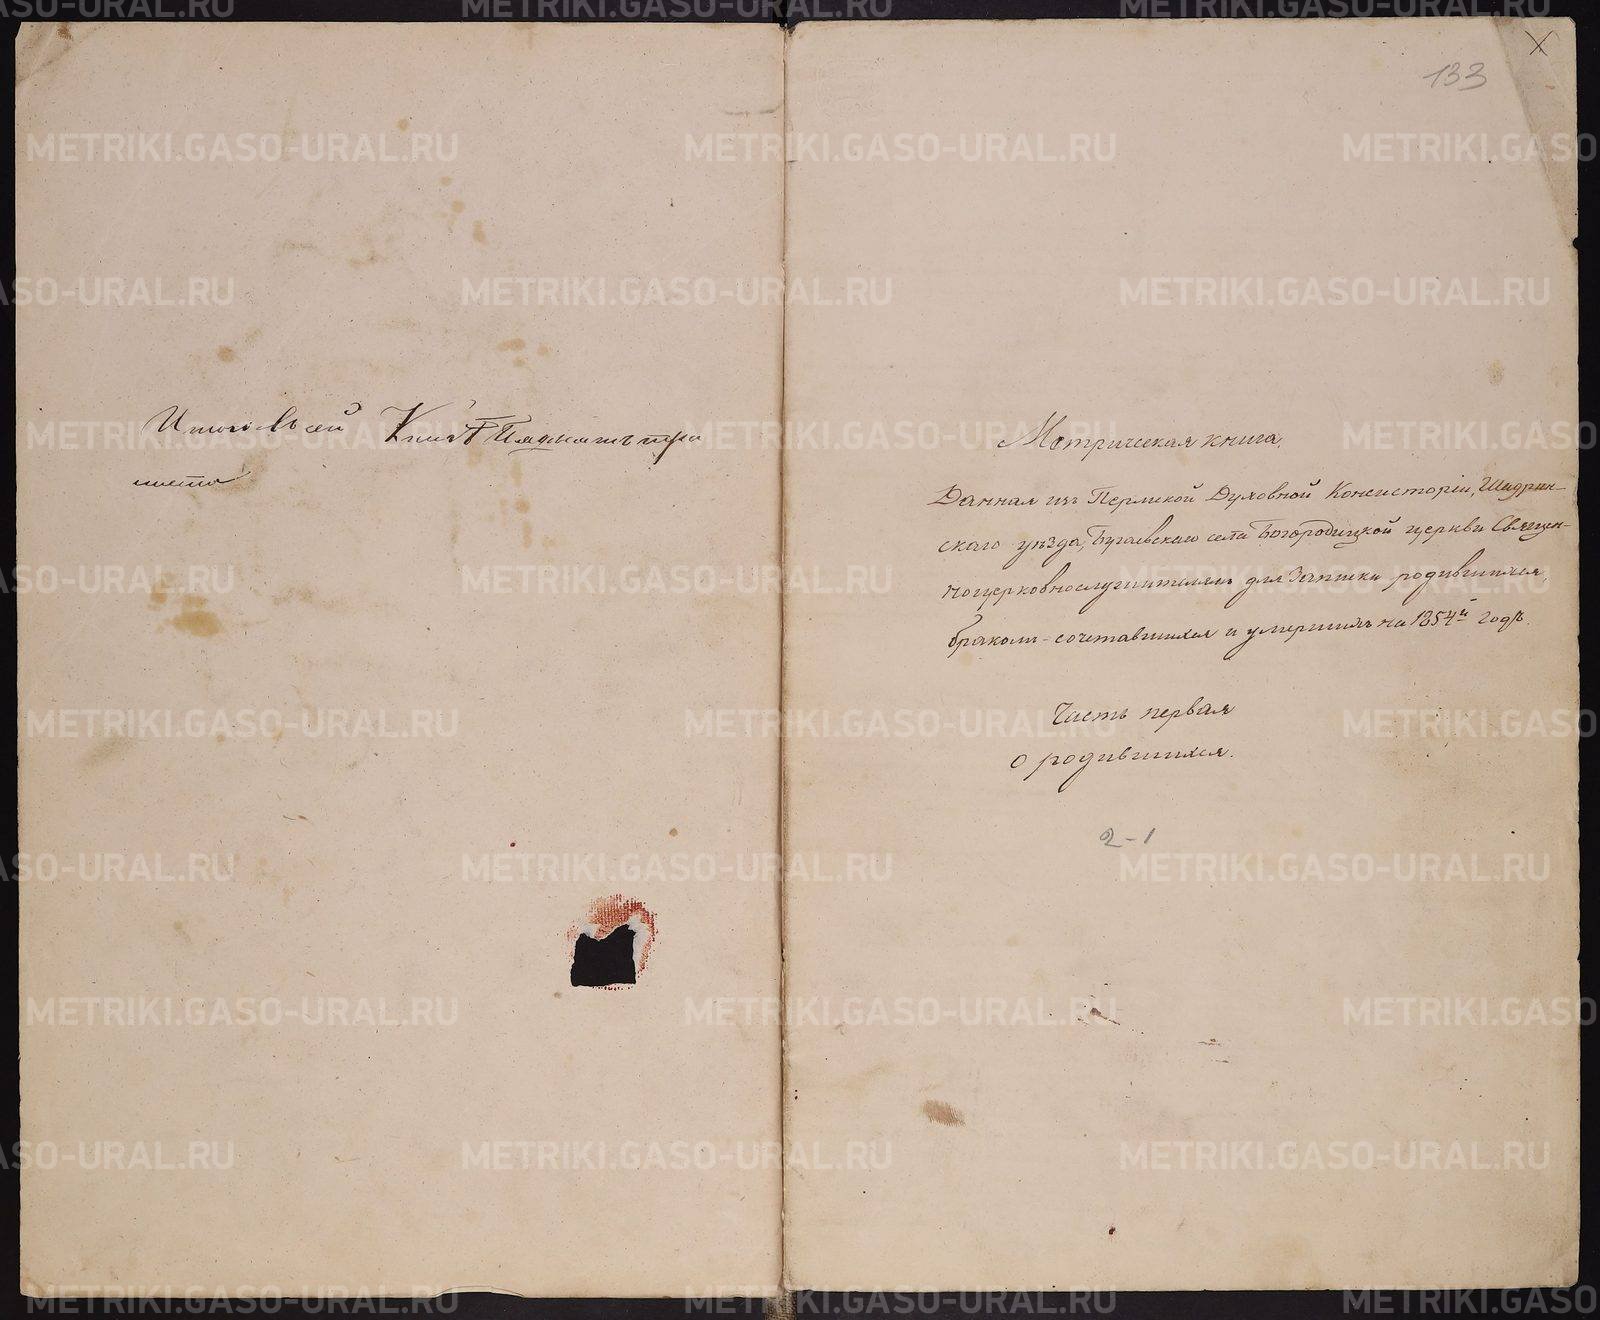 Итого въ сей Книгѣ Пядисятъ три
листа
133
Метрическая книга,
Данная изъ Пермской Духовной Консисторіи, Шадрин-
скаго уѣзда, Бугаевскаго села Богородицкой церкви Священ-
ноцерковнослужителямъ для Записки родившихся,
бракомъ-сочетавшихся и умершихъ на 1854й годъ.
Часть первая
о родившихся.
2-1
METRIKI.GASO-URAL.RU